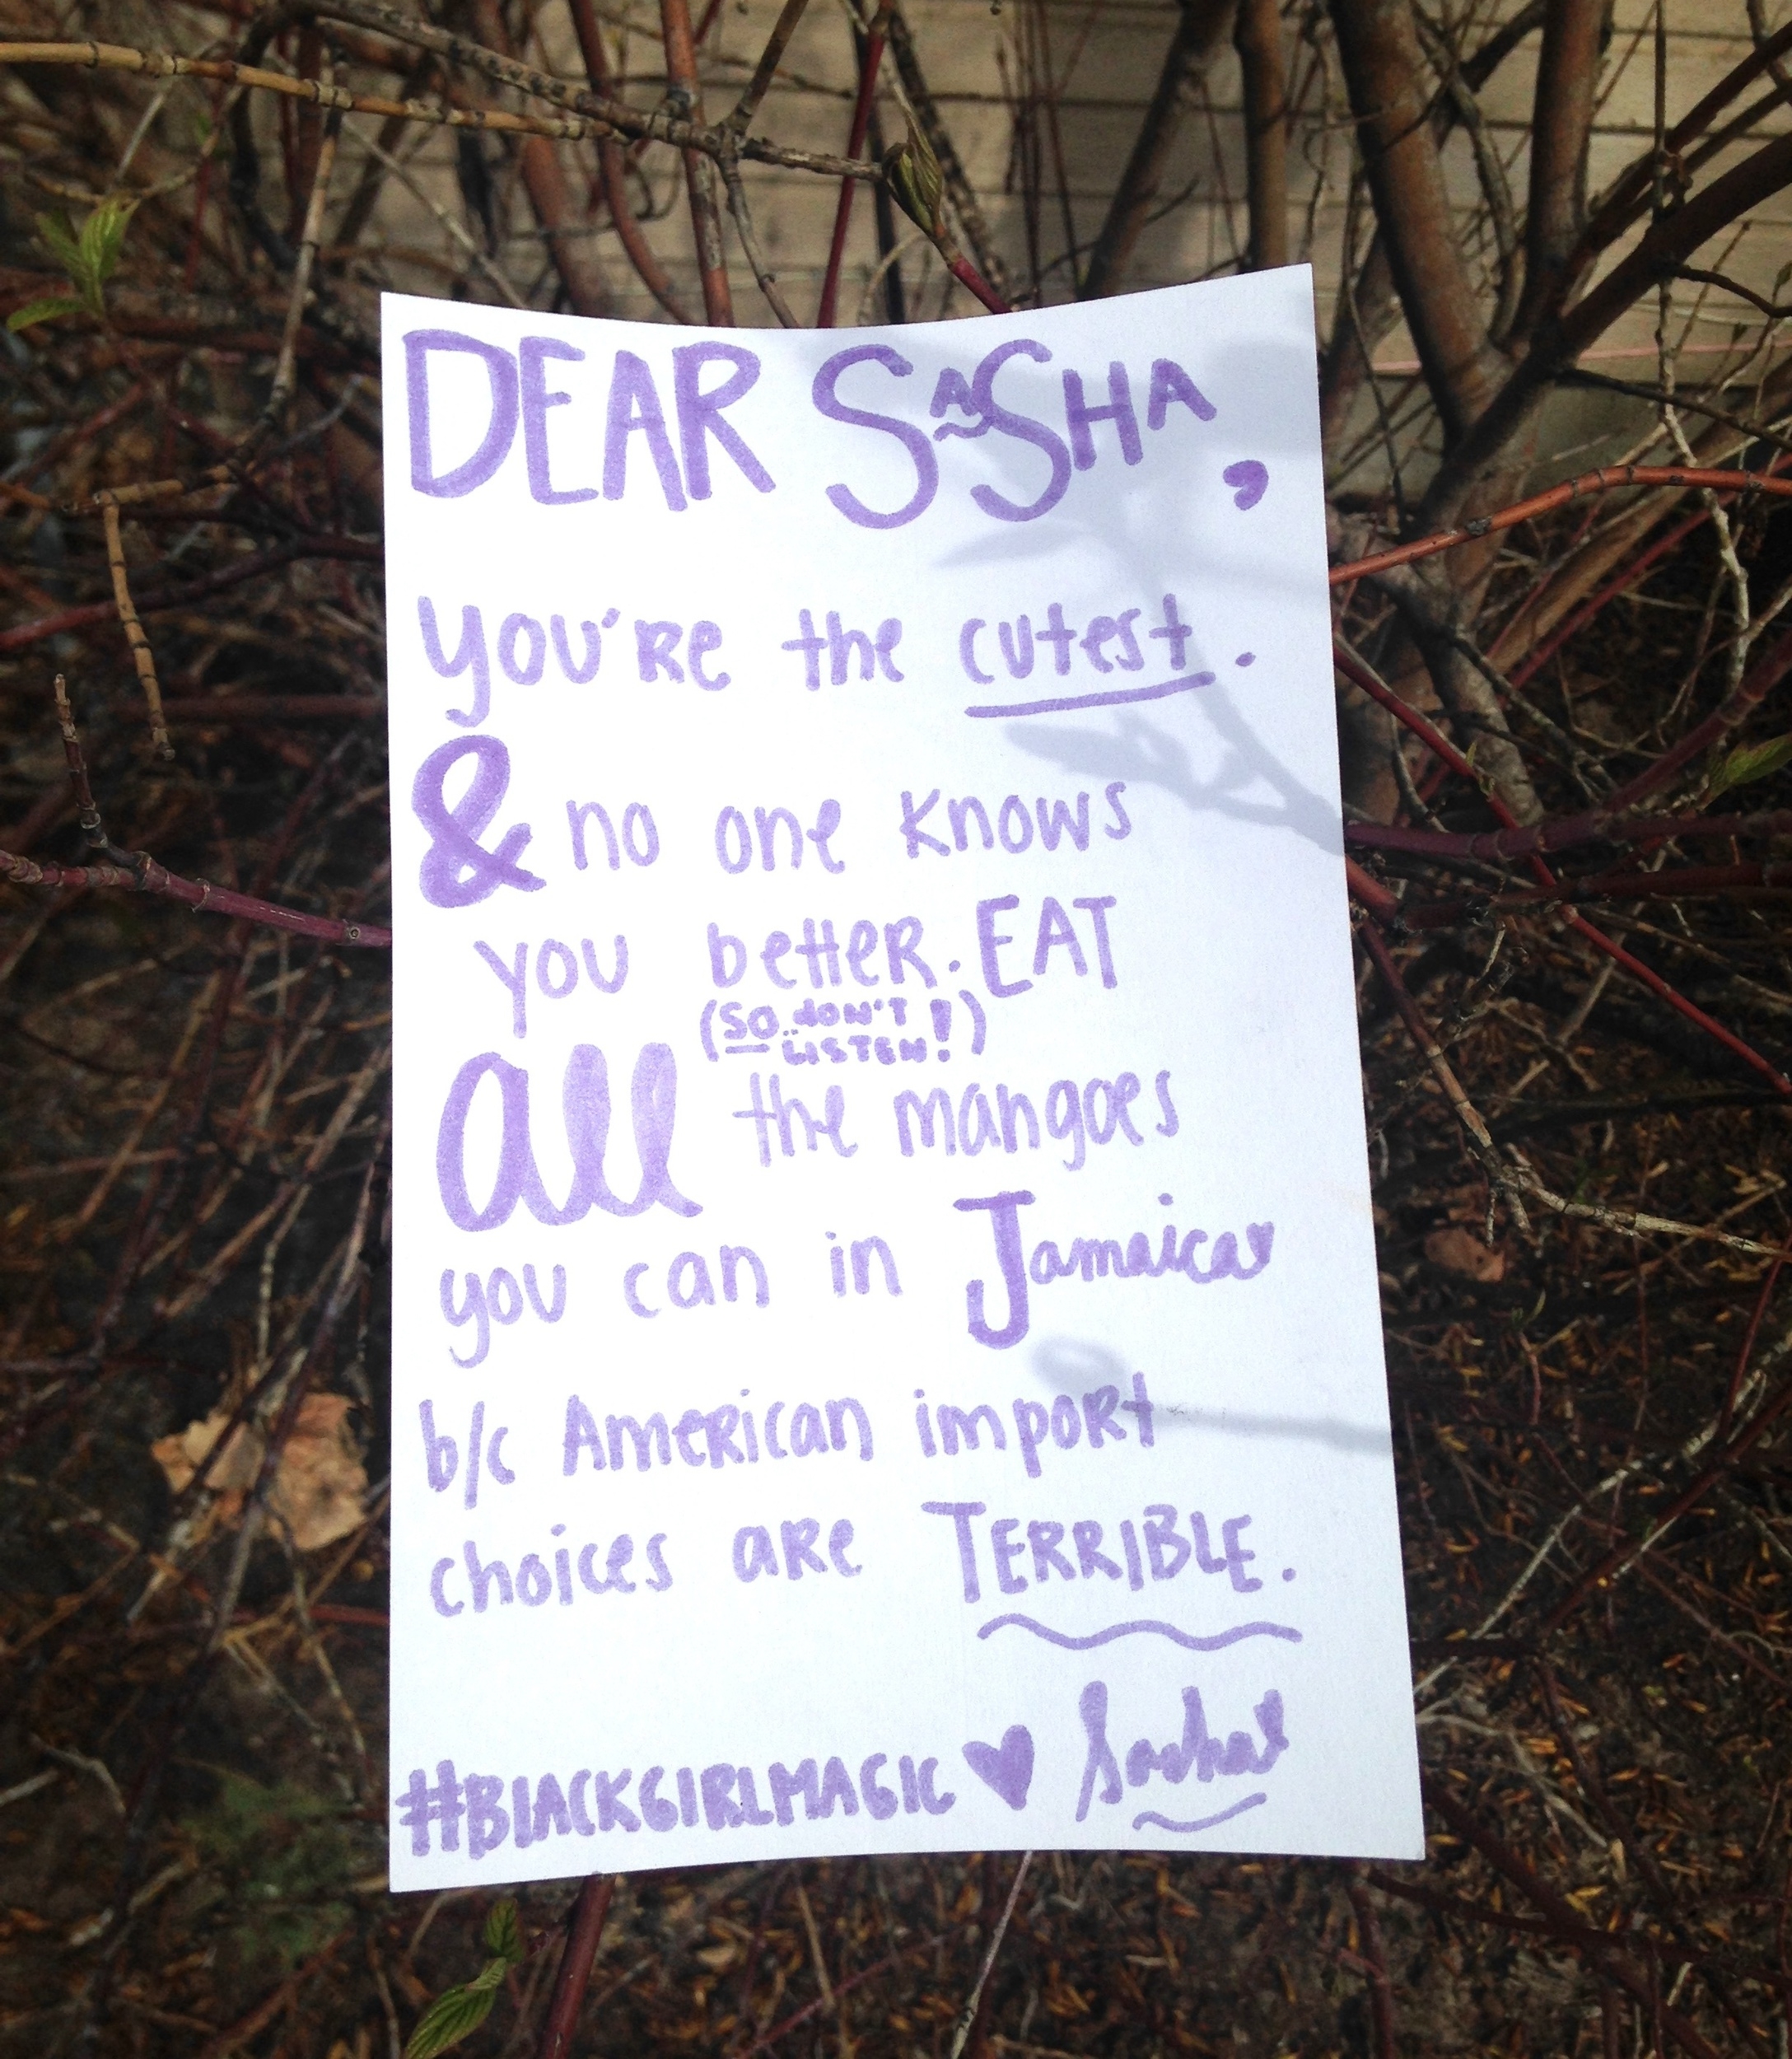 DEAR SASHA,
you're the cutest.
& no one knows
you better. EAT
(SO.. DON'T
LISTEN!)
all the mangoes
you can in Jamaica
b/c American import
choices are TERRIBLE.
#BLACKGIRLMAGIC ♥ Sasha